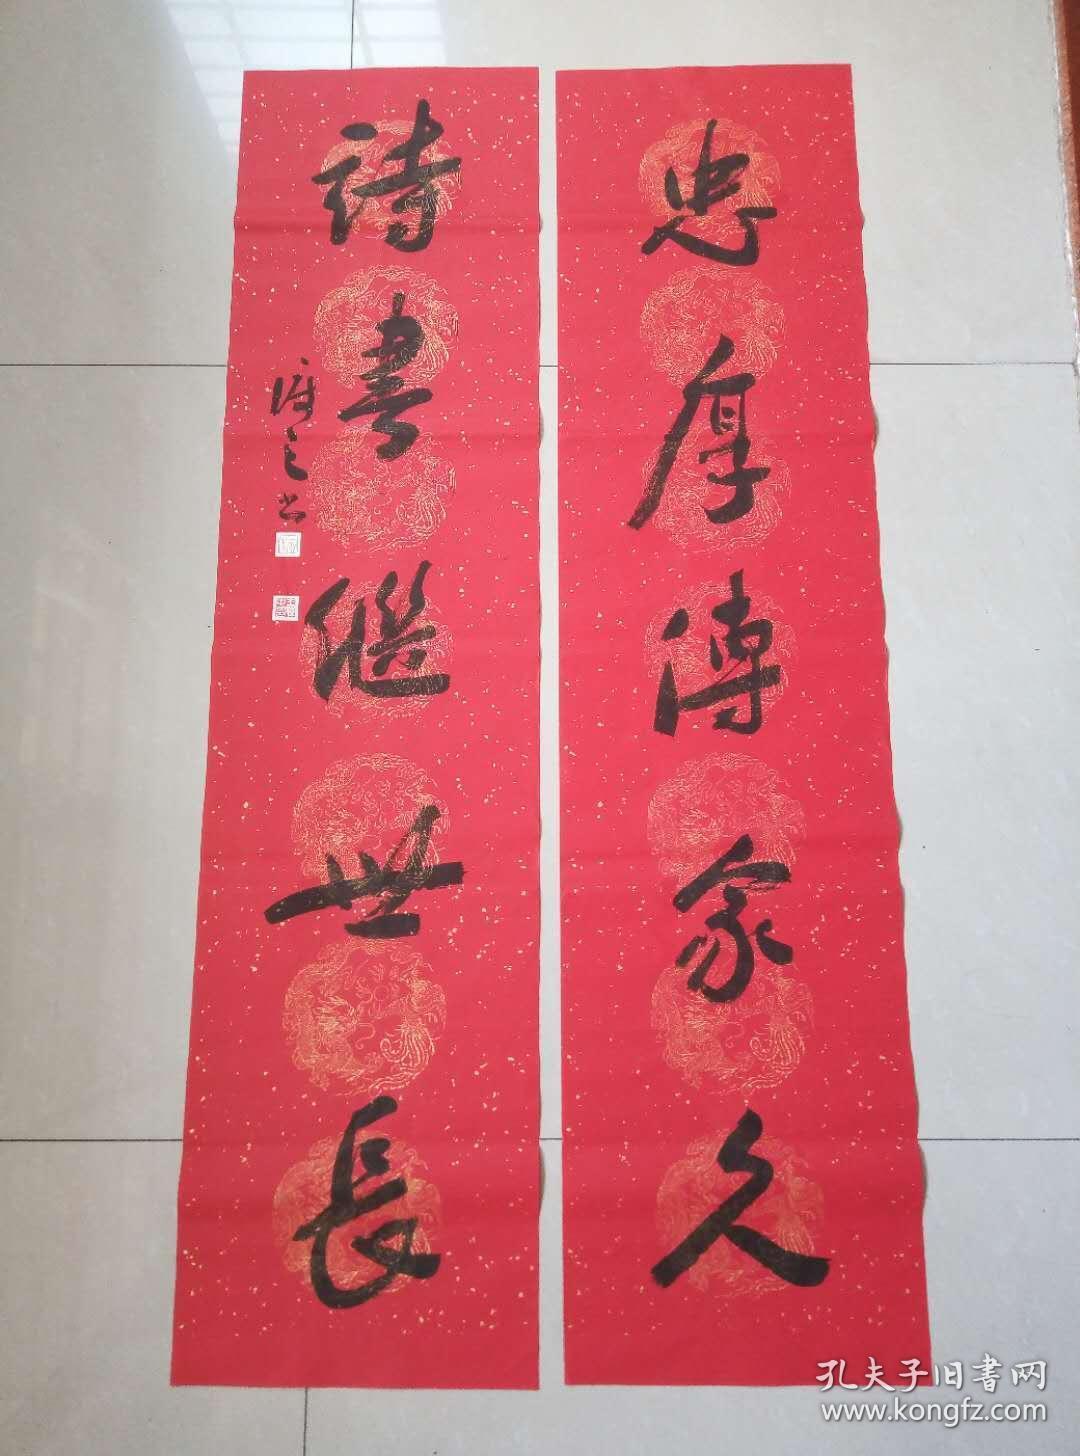 忠厚傳家久
詩書繼世長
孔夫子旧书网
www.kongfz.com